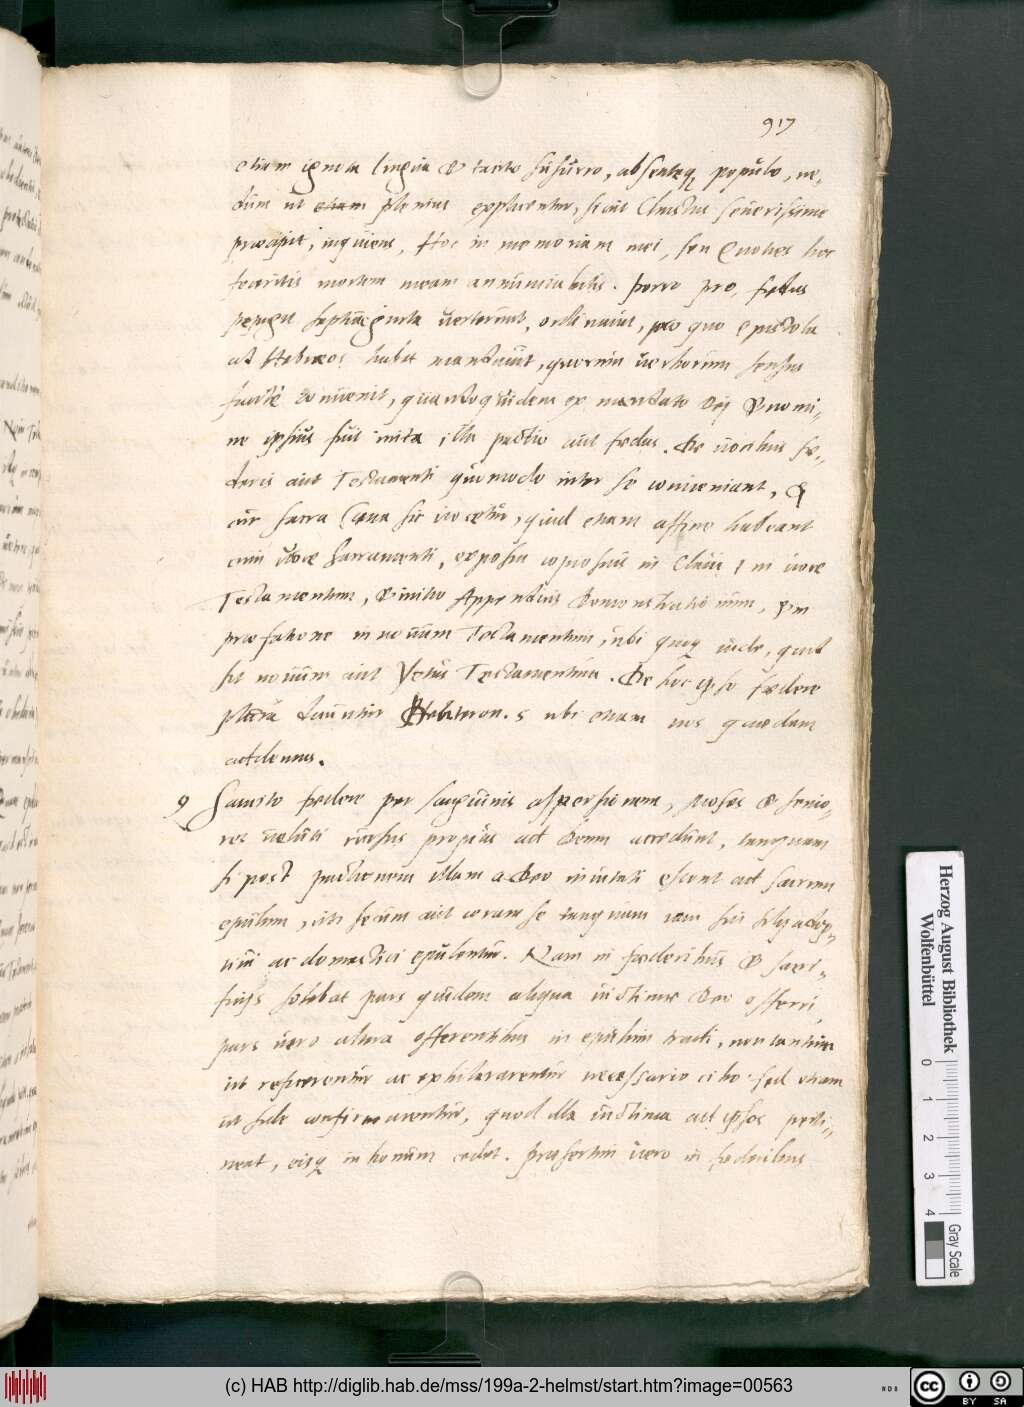 917
etiam ignota lingua & tacito susurro, absenteq; populo, ne-
dum ut etiam plenius explicentur, sicut Christus seuerissime
praecipit, inquiens, Hoc in memoriam mei, seu Quoties hoc
feceritis mortem meam annunciabitis. Porro pro, foedus
pepigit septuaginta uerterunt, ordinauit, pro quo epistola
ad Hebraeos habet mandauit, quorum uerborum sensus
facile conuenit, quandoquidem ex mandato Dei & nomi-
ne ipsius fuit inita illa pactio aut foedus. De uocibus foe-
deris aut Testamenti quomodo inter se conueniant, &
cur sacra Caena sic uocetur, quid etiam affine habeant
cum uoce Sacramenti, exposui copiosius in Claui 1 in uoce
Testamentum, & initio Appendicis Demonstrationum, & in
praefatione in nouum Testamentum, ubi quoq; uide, quid
sit nouum aut Vetus Testamentum. De hoc ipso foedere
plura dicuntur Deuteron. 5 ubi etiam nos quaedam
addemus.
9 Sancito foedere per sanguinis aspersionem, Moses & senio-
res ueluti rursus propius ad Deum accedunt, tanquam
si post pactionem illam a Deo inuitati essent ad sacrum
epulum, uti secum aut coram se tanquam iam sui filij adop-
tiui ac domestici epulentur. Nam in foederibus & sacri-
ficijs solebat pars quidem aliqua uictimae Deo offerri,
pars uero altera offerentibus in epulum tradi, non tantum
ut reficerentur ac exhilararentur necessario cibo: sed etiam
ut fide confirmarentur, quod illa uictima ad ipsos perti-
neat, eisq; in bonum cedat. Praesertim uero in foederibus
Herzog August Bibliothek
Wolfenbüttel
0 1 2 3 4
Gray Scale
(c) HAB http://diglib.hab.de/mss/199a-2-helmst/start.htm?image=00563
cc BY SA